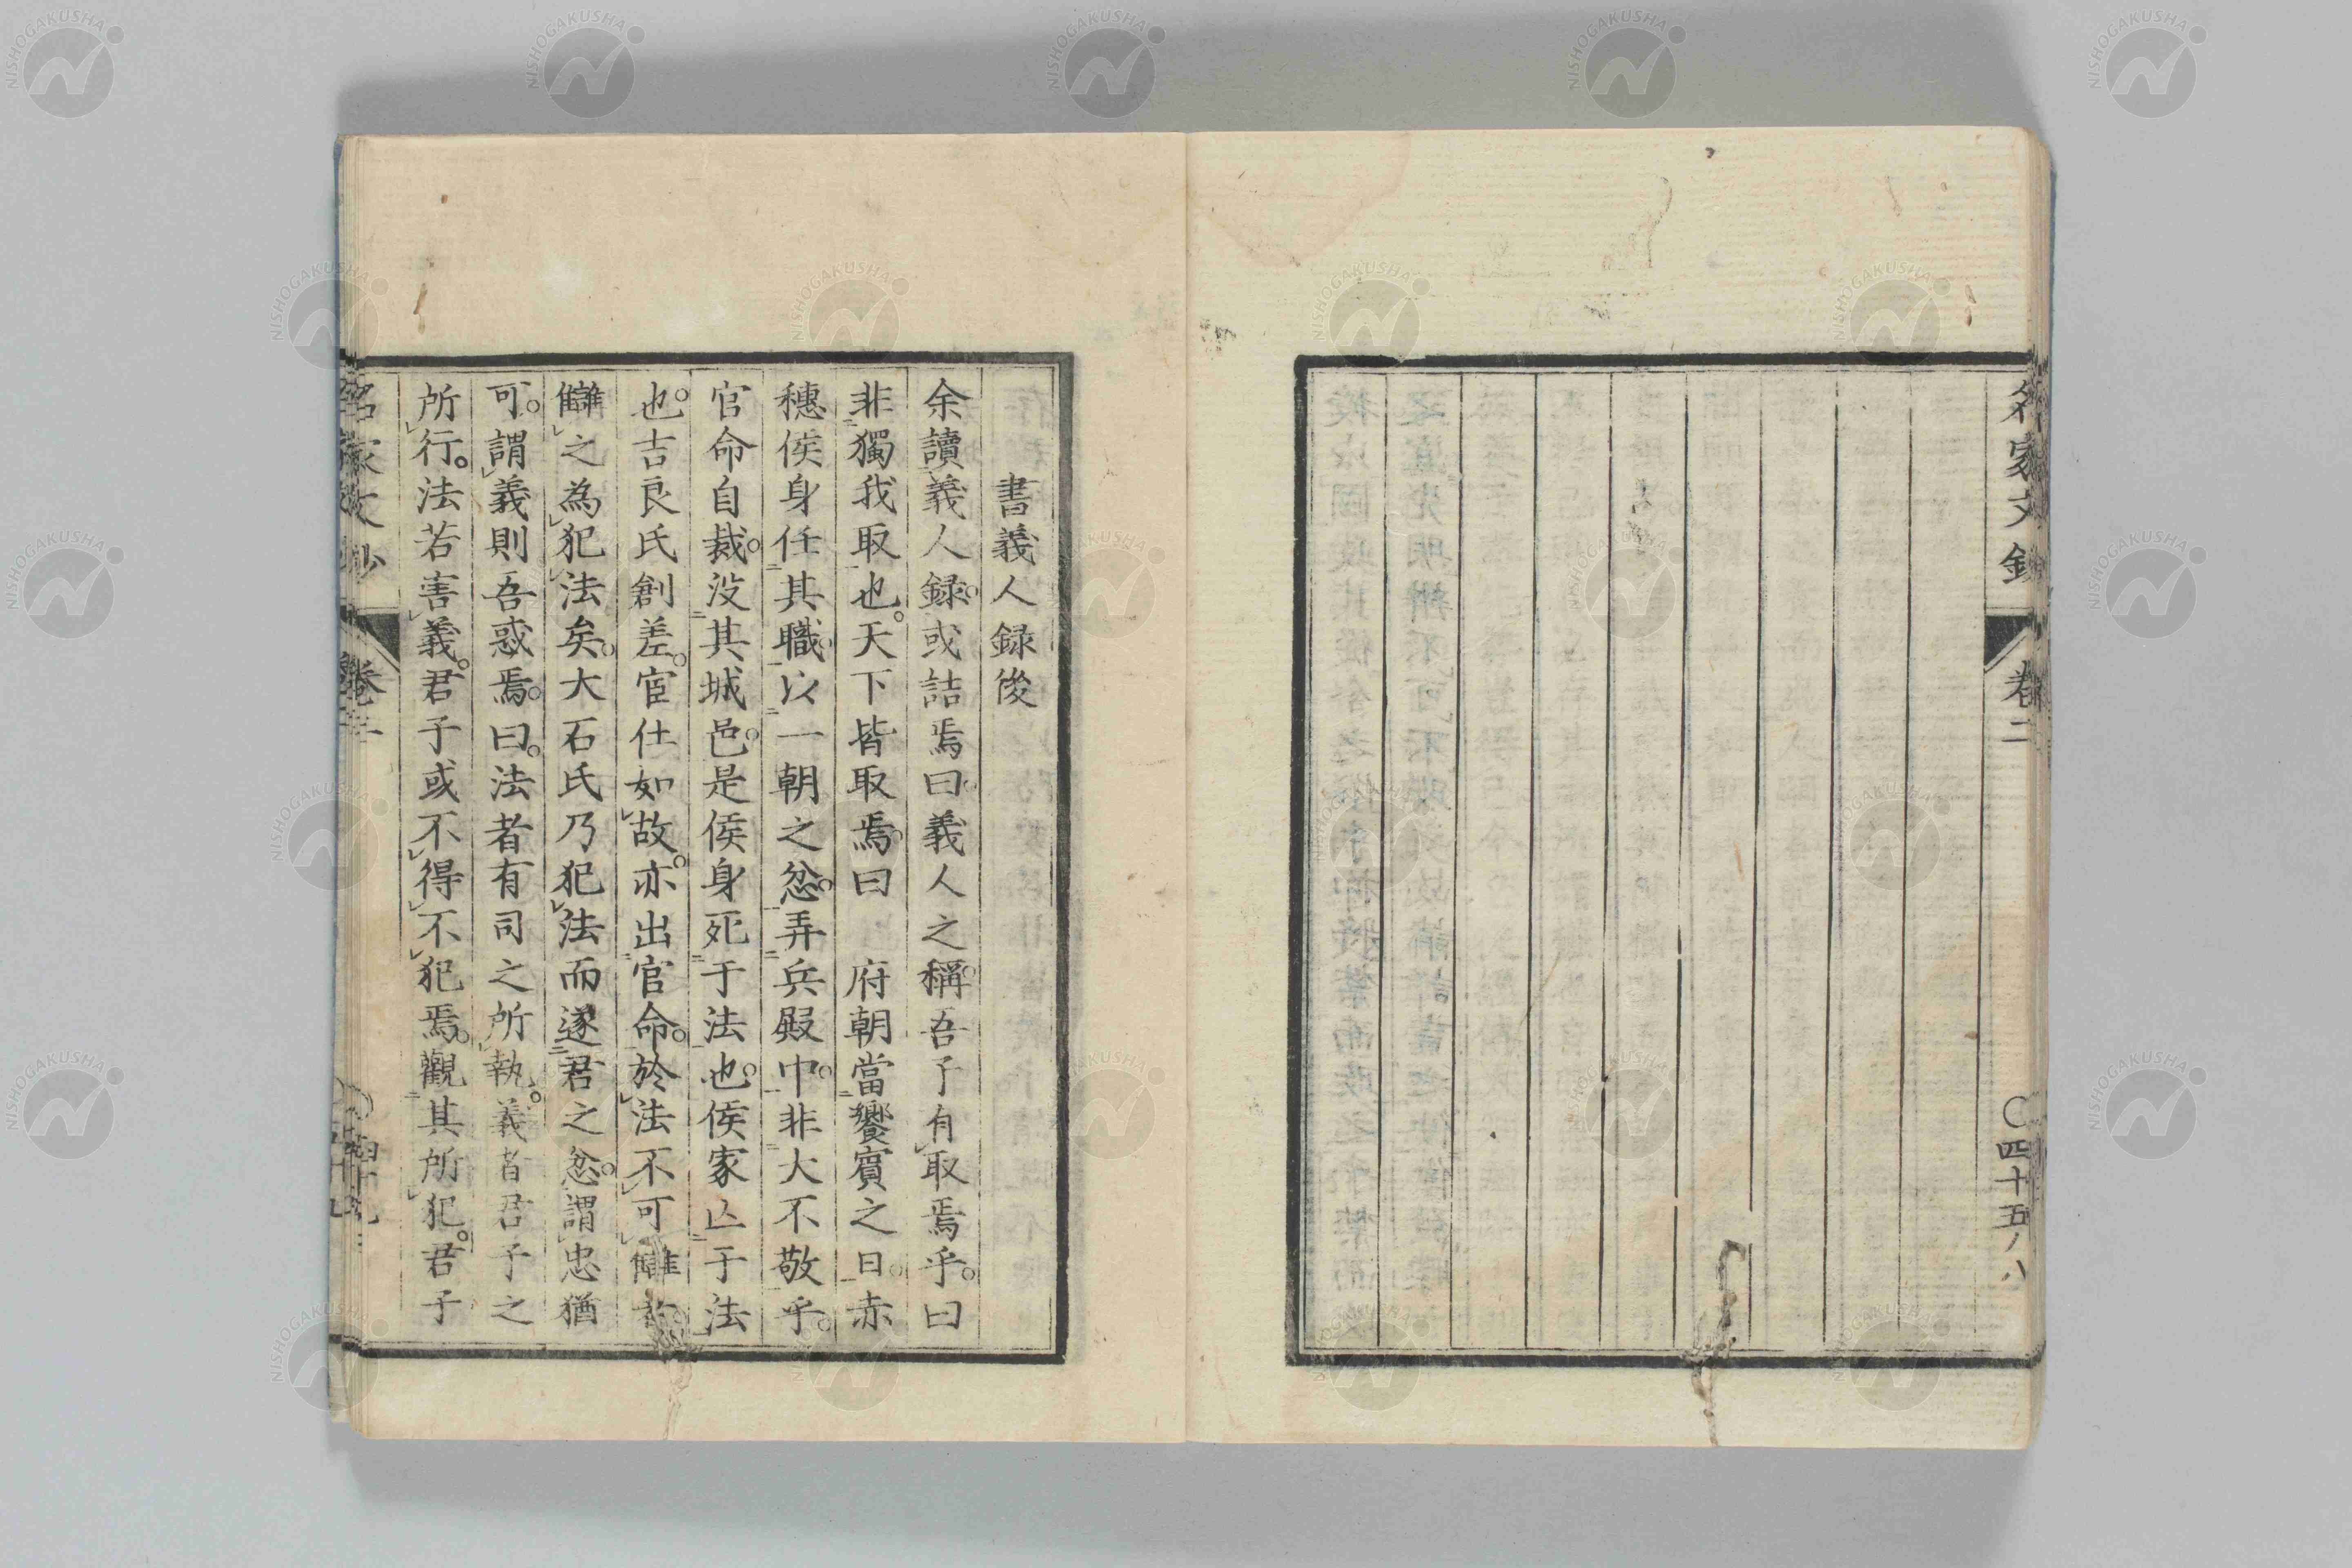 名家文鈔
卷二
○四十五ノ八
書義人録後
余讀義人録。或詰焉曰。義人之稱。吾子有取焉乎。曰
非獨我取也。天下皆取焉。曰 府朝當饗賓之日。赤
穗侯身任其職。以一朝之忿。弄兵殿中。非大不敬乎。
官命自裁。没其城邑。是侯身死于法也。侯家亡于法
也。吉良氏創差。宦仕如故。亦出官命。於法不可讎
讎之為犯法矣。大石氏乃犯法而遂君之忿。謂忠猶
可。謂義則吾惑焉。曰。法者有司之所執。義者君子之
所行。法若害義。君子或不得不犯焉。觀其所犯。君子
名家文鈔
卷三
NISHOGAKUSHA